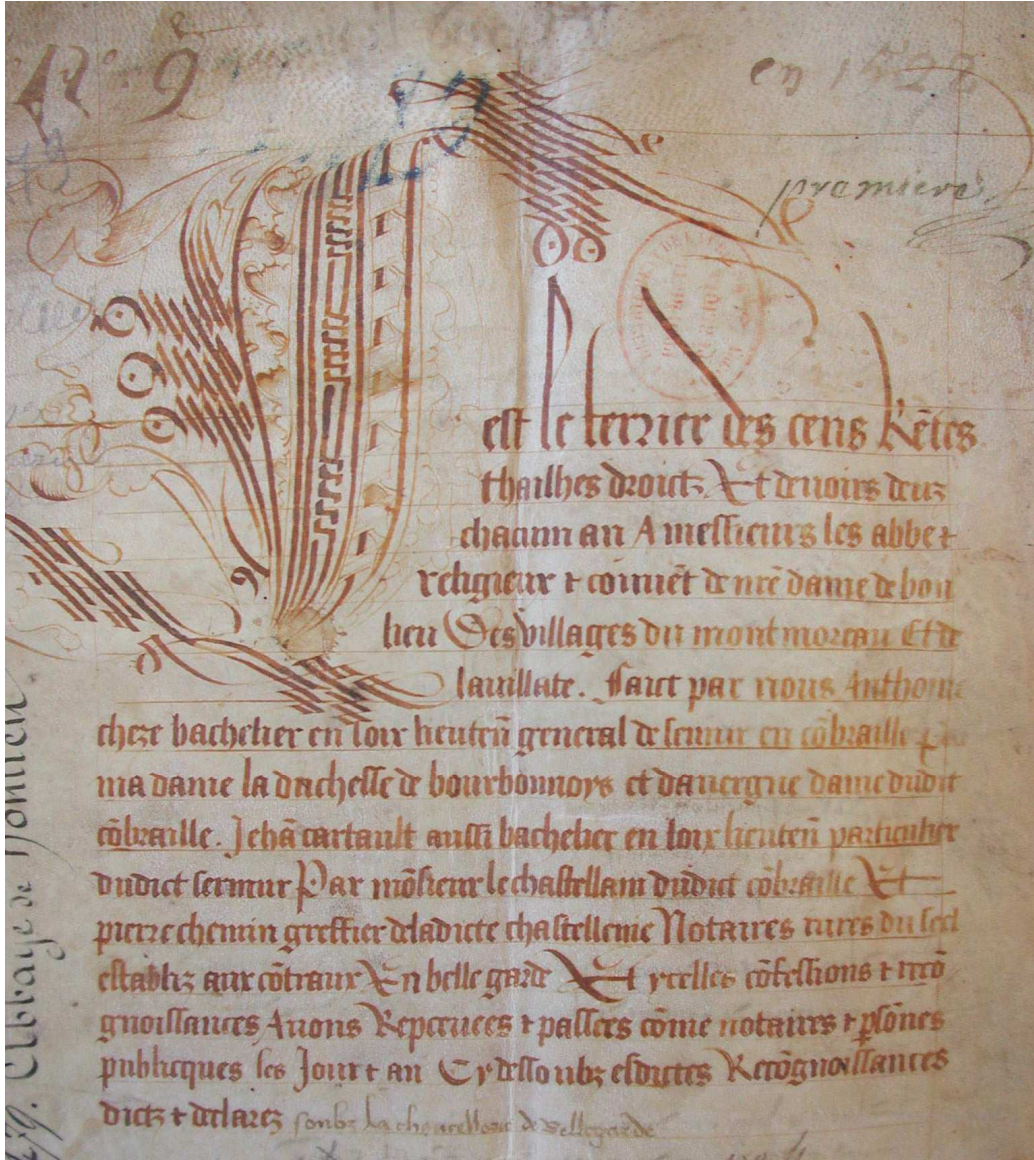 N.º 9
en 1522
premiere
est le terrier des cens Rētes
thailhes droictz Et devoirs deuz
chacun an A messieurs les abbe &
religieux & convēt de nr̄e dame de bon
lieu Des villages du montmoreau Et de
lavillate. Faict par nous Anthoine
cheze bachelier en loix lieuten̄ general de sermur en cōbraille
ma dame la duchesse de bourbonnoys et dauvergne dame dudit
cōbraille. Jehā cartault aussi bachelier en loix lieuten̄ particulier
dudict sermur Par mōsieur le chastellain dudict cōbraille Et
pierre chemin greffier deladicte chastellenie Notaires iures du seel
establiz aux cōtraux En belle garde Et ycelles cōfessions & recō
gnoissances Avons Repceuees & passees cōme notaires & p̱sōnes
publicques les Jour & an Cy dessoubz esdictes Recōgnoissances
dictz & declarez soubz la chancellerie de Bellegarde
479. Abbaye de Bonlieu